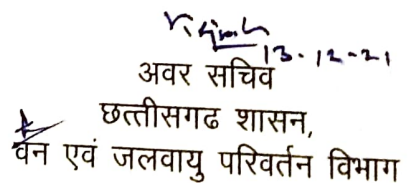 13-12-21
अवर सचिव
छत्तीसगढ शासन,
वन एवं जलवायु परिवर्तन विभाग